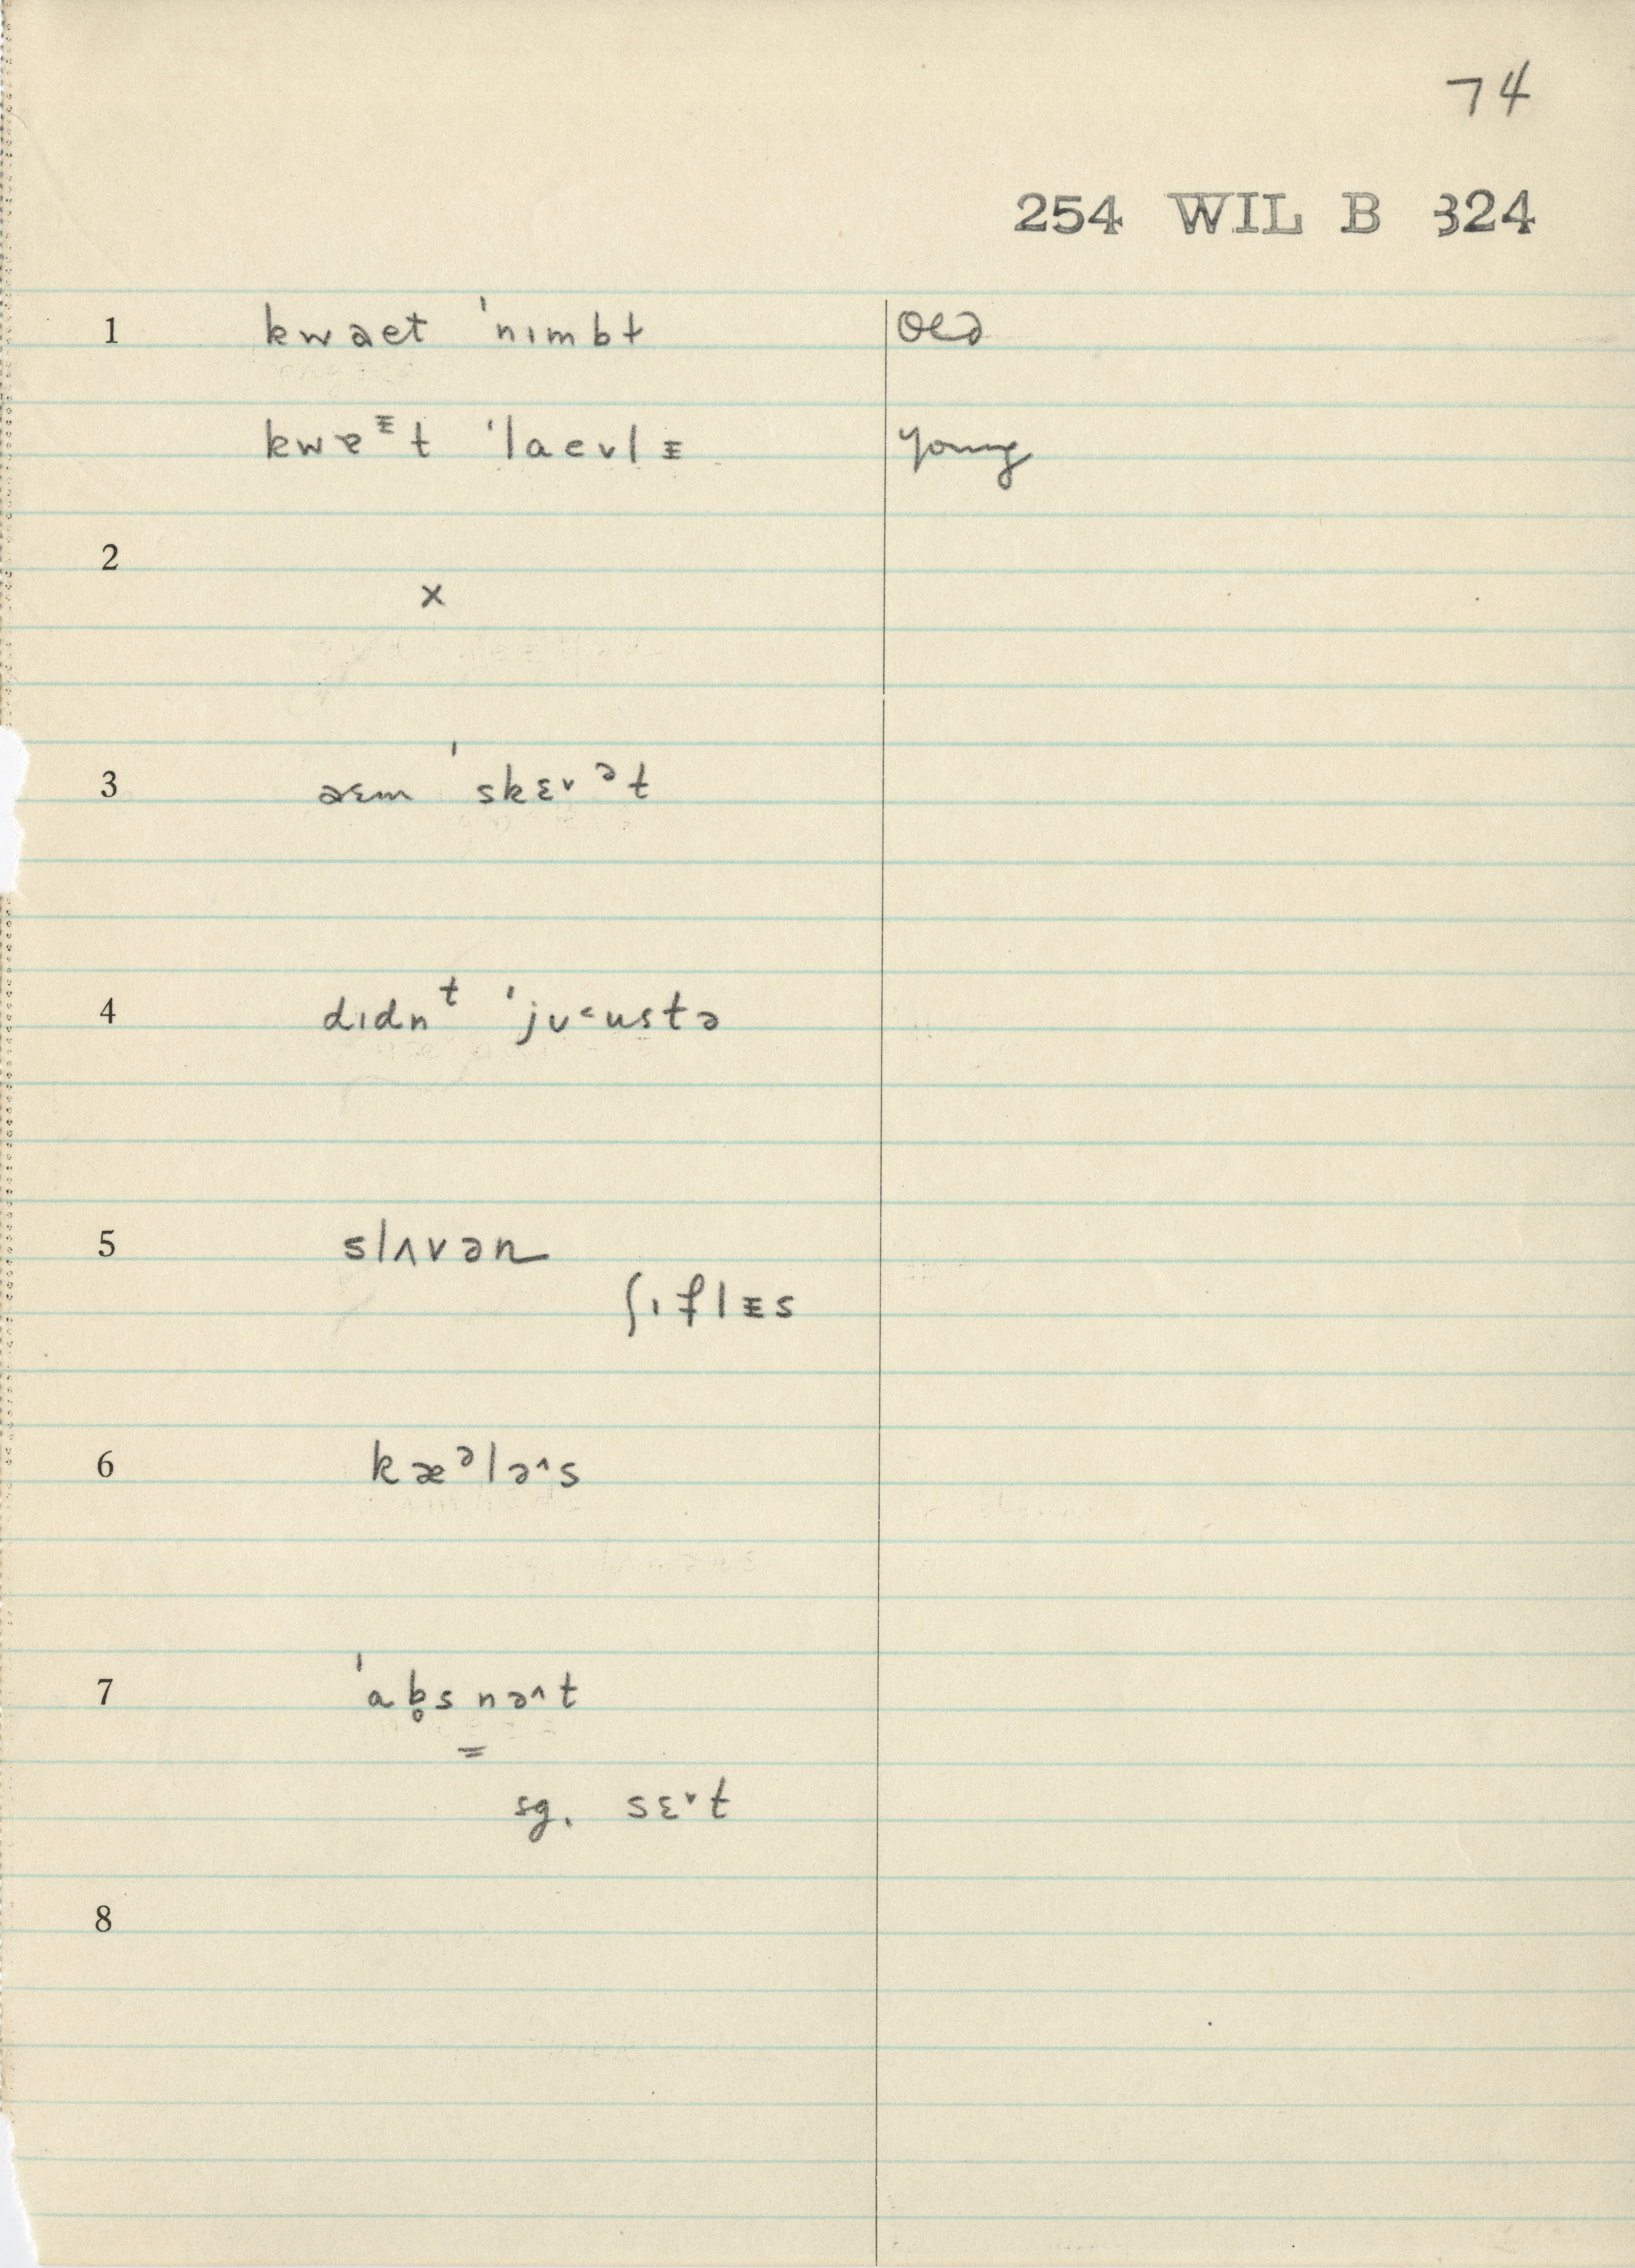 74
254 WIL B 324
1 kwaet ˈnɪmbɫ old
kwɐᵻt ˈlaevlᵻ young
2
x
3 aɛm ˈskɛ˅ᵊt
4 dɪdnᵗ ˈjʊ˂ustə
5 slʌvən
ʃɪfləs
6 kæᵊlə˄s
7 ˈab̥snə˄t
=
sg. sɛ˅t
8